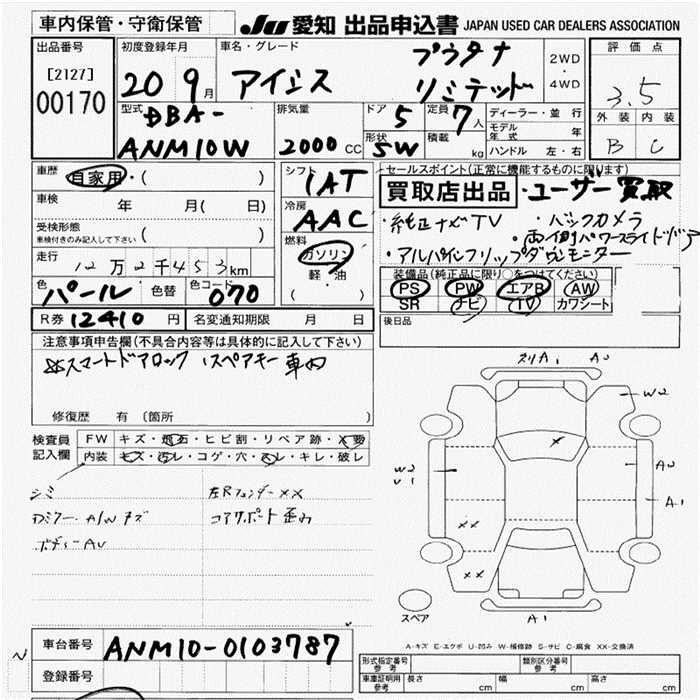 車内保管・守衛保管
JU 愛知 出品申込書 JAPAN USED CAR DEALERS ASSOCIATION
出品番号
[2127]
00170
初度登録年月
20 9月
車名・グレード
アイシス
プラタナ
リミテッド
2WD
・
4WD
評価点
3.5
外装 内装
B C
型式
DBA-
ANM10W
排気量
2000 CC
ドア 5
形状 SW
定員 7人
積載 kg
ディーラー・並行
モデル年式 年
ハンドル 左・右
車歴
自家用・( )
車検 年 月( 日)
受検形態
車検付きのみ記入して下さい ( )
走行
12万2千453km
色 パール 色替 色コード 070
シフト
IAT
冷房
AAC
燃料
ガソリン
軽・油
( )
セールスポイント(正常に機能するものに限ります)
買取店出品・ユーザー買取
・純正ナビTV ・バックカメラ
・両側パワースライドドア
・アルパインフリップダウンモニター
装備品(純正品に限り○をつけてください)
PS PW エアB AW
SR ナビ TV カワシート
後日品
R券 12410 円 名変通知期限 月 日
注意事項申告欄(不具合内容等は具体的に記入して下さい)
※スマートドアロック 1スペアキー 車内
修復歴 有 〔箇所 〕
検査員
記入欄
FW キズ・飛石・ヒビ割・リペア跡・X要
内装 キズ・汚レ・コゲ・穴・スレ・キレ・破レ
シミ
左Rフェンダー XX
コアサポート歪み
ドアミラー・A/Wキズ
ボディーAU
W2
W2
A1
XX
XX
A1
スペア
A-キズ E-エクボ U-凹み W-補修跡 S-サビ C-腐食 XX-交換済
車台番号 ANM10-0103787
登録番号
形式指定番号
参考
類別区分番号
参考
車庫証明用
参考
長さ cm 幅 cm 高さ cm